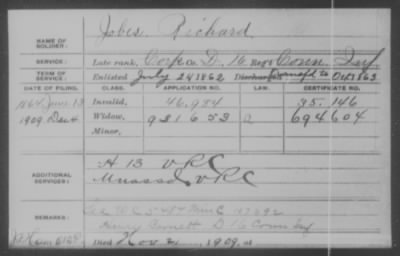 NAME OF SOLDIER: Jobes, Richard
SERVICE: Late rank, Corp Co. D, 16 Reg't Conn. Inf.
TERM OF SERVICE: Enlisted July 24 1862 Discharged Oct 1863
DATE OF FILING. CLASS. APPLICATION NO. LAW. CERTIFICATE NO.
1864 June 13 Invalid, 46.954 35.146
1909 Dec 4 Widow, 931653 694604
Minor,
ADDITIONAL SERVICES: H 13 V R C
V R C
REMARKS: W C
Henry D 16 Conn Inf
Died Nov. 1909, at